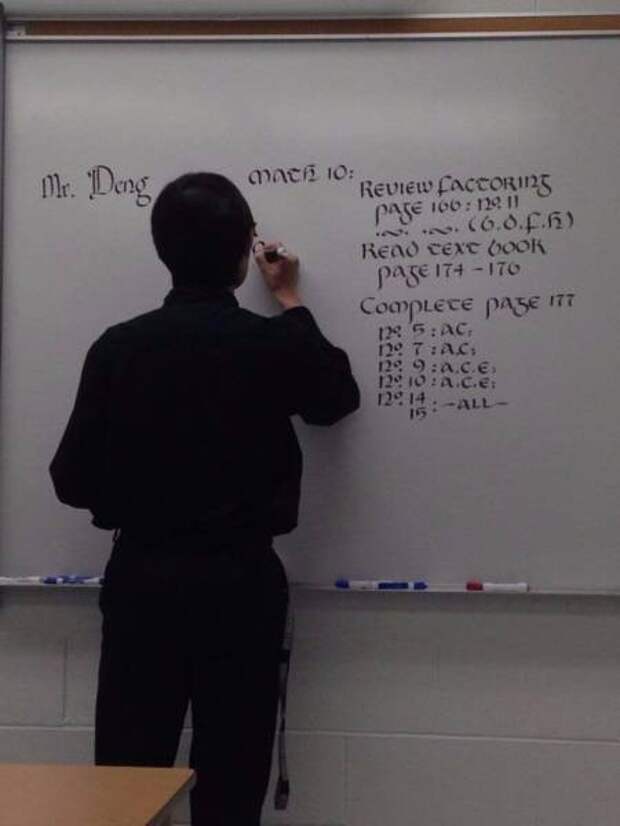 Mr. Deng
Math 10:
Review factoring
page 166: No. 11
(b.d.f.h)
Read text book
page 174 - 176
Complete page 177
No. 5: a.c;
No. 7: a.c;
No. 9: a.c.e;
No. 10: a.c.e;
No. 14
15: -ALL-